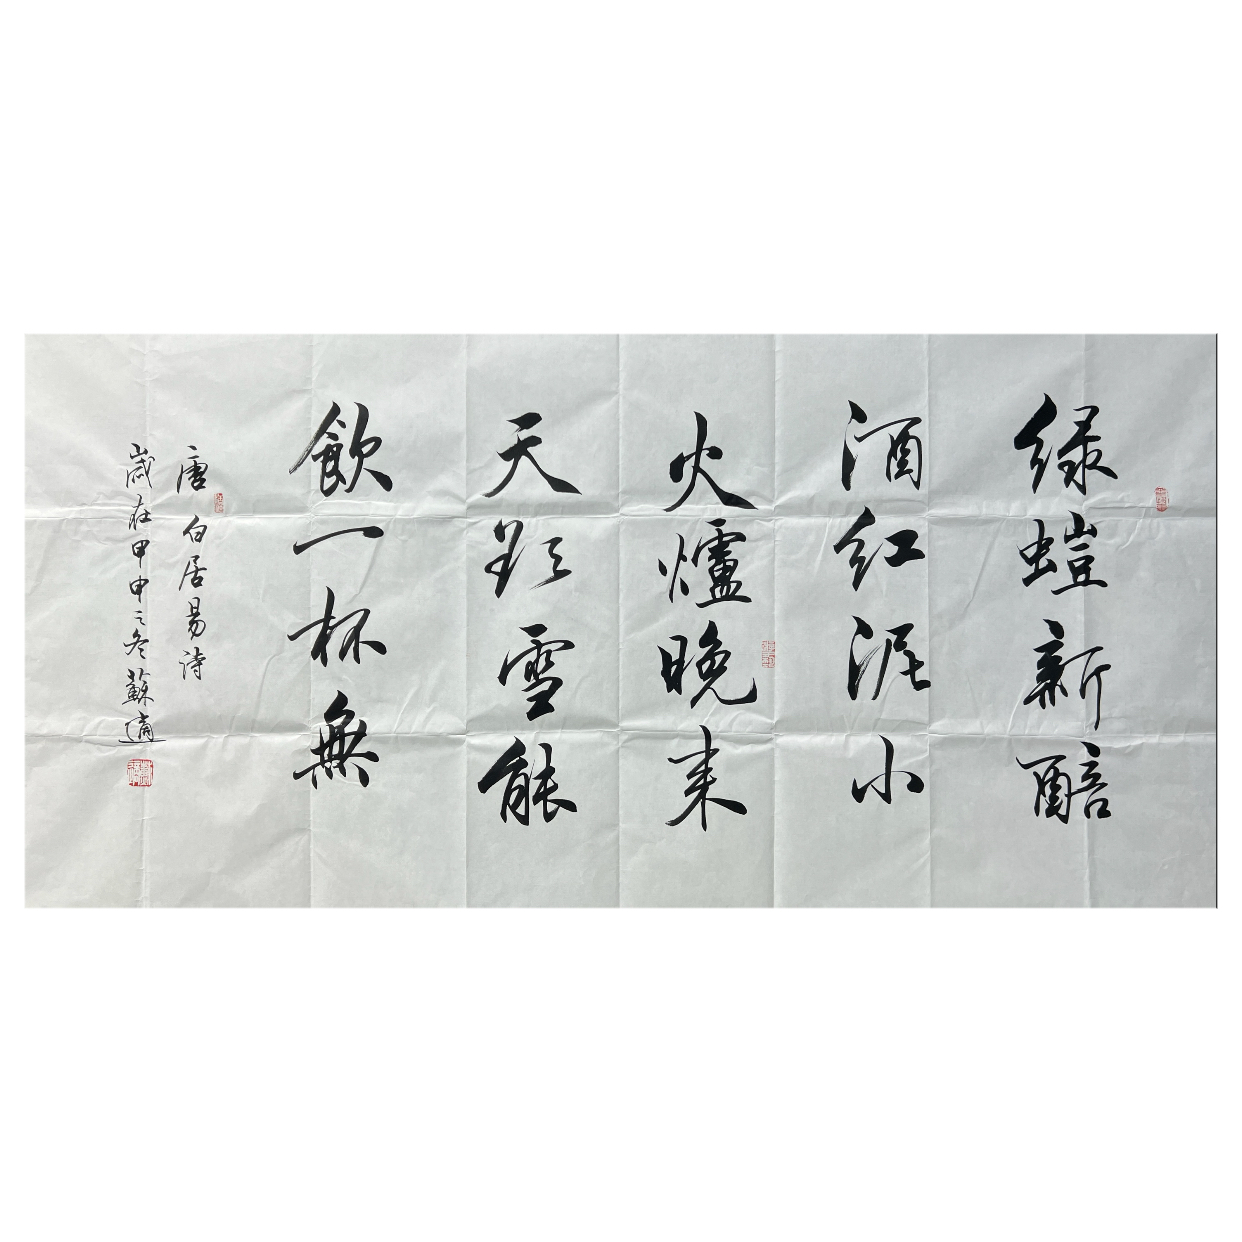 绿螘新醅
酒红泥小
火爐晚来
天欲雪能
飲一杯無
唐白居易诗
歲在甲申之冬蘇適